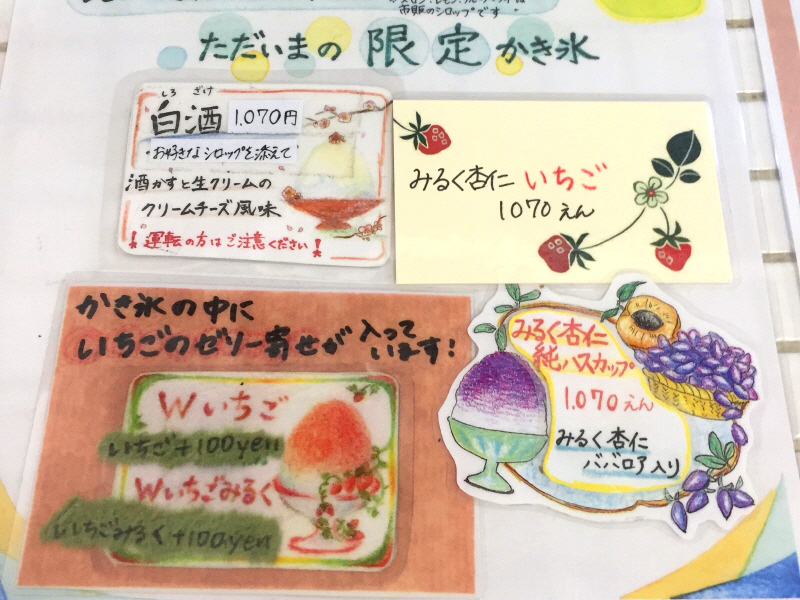 市販のシロップです
ただいまの 限定 かき氷
しろ ざけ
白酒 1,070円
お好きなシロップを添えて
酒かすと生クリームの
クリームチーズ風味
!運転の方はご注意ください!
みるく杏仁 いちご
1070えん
かき氷の中に
いちごのゼリー寄せが 入って
います!
Wいちご
いちご+100yen
Wいちごみるく
いちごみるく+100yen
みるく杏仁
純ハスカップ
1.070えん
みるく杏仁
ババロア入り